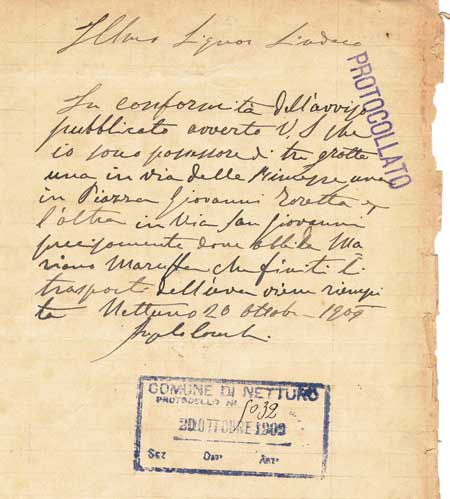 Illmo Signor Sindaco
PROTOCOLLATO
In conformità dell'avviso
pubblicato avverto V. S che
io sono possessore di tre grotte
una in via delle una
in Piazza Giovanni ed
l'altra in Via San Giovanni
precisamente dove abita Ma
riano che finiti il
trasporto dell'uva viene riempi
ta Nettuno 20 ottobre 1909
COMUNE DI NETTUNO
PROTOCOLLO N° 5032
20 OTTOBRE 1909
Sez Dat. Art.